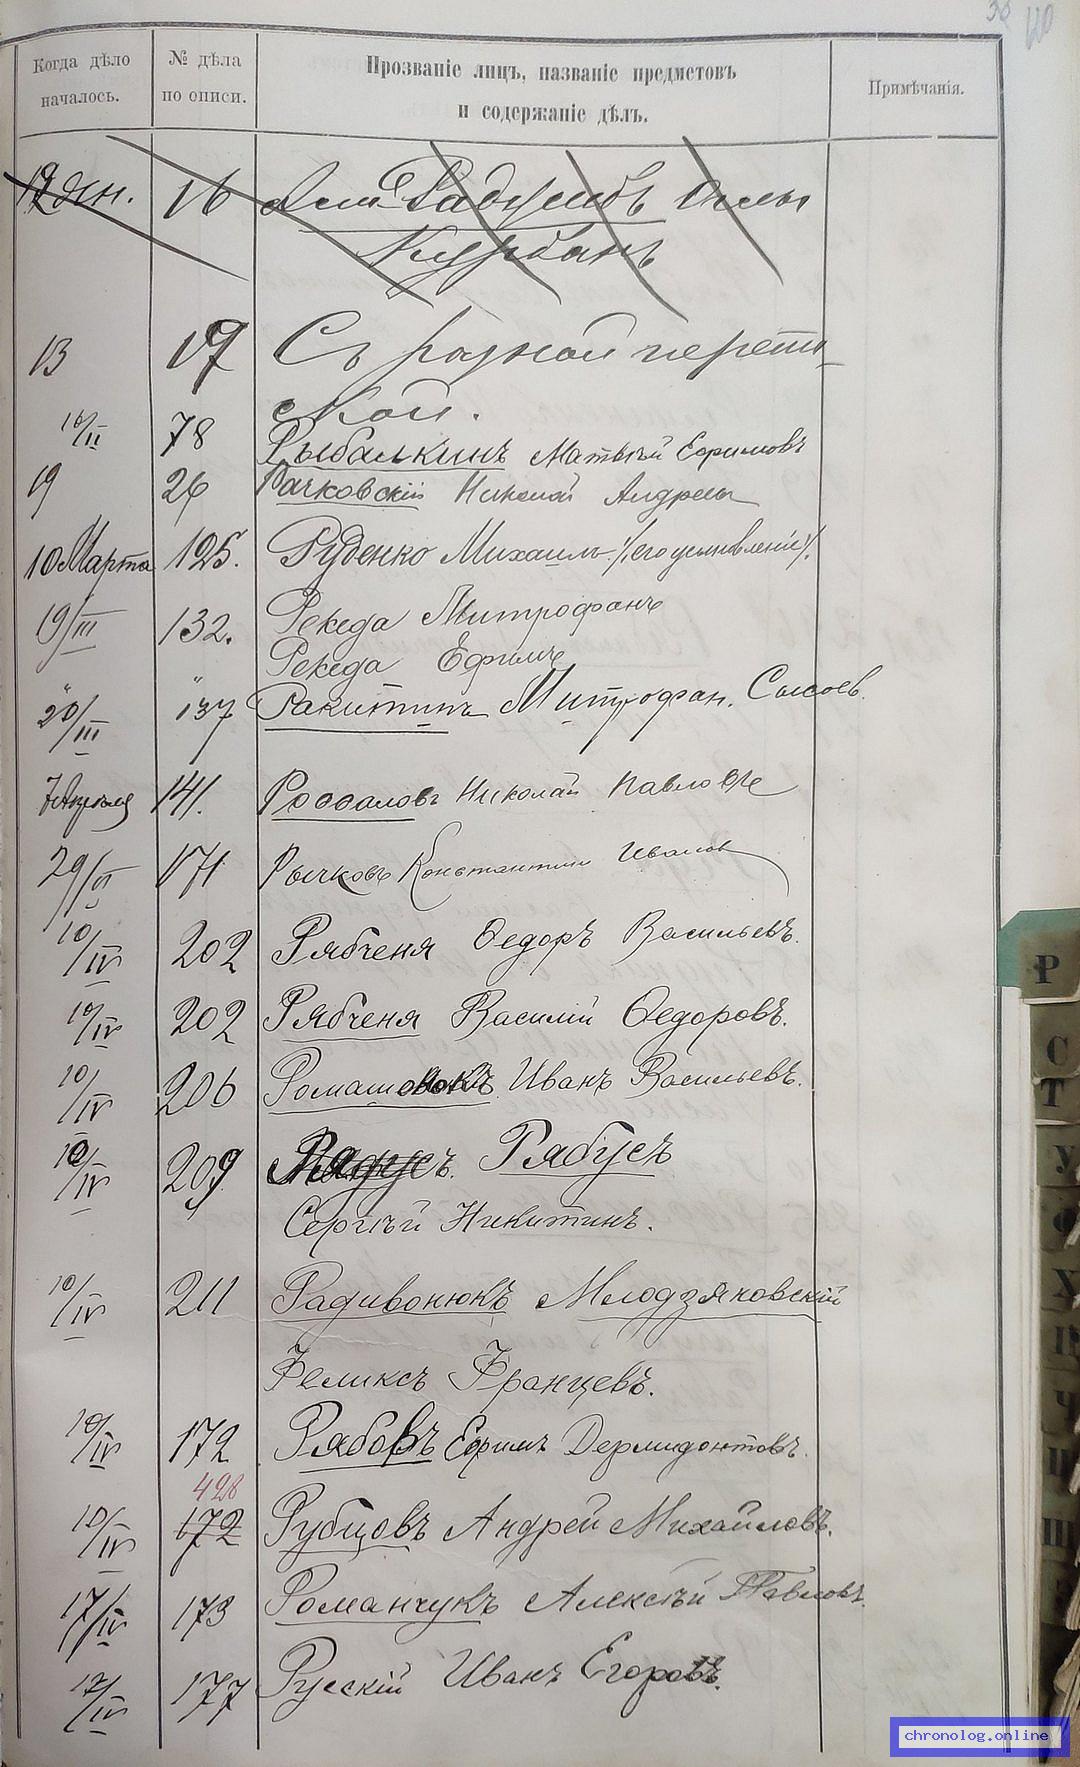 Когда дѣло началось.
№ дѣла по описи.
Прозваніе лицъ, названіе предметовъ
и содержаніе дѣлъ.
Примѣчанія.
16
Курбанъ
13 17 Съ разной перепи-
ской.
16/II 78 Рыбалкинъ Матвѣй Ефимовъ
19 26 Рачковскій Николай Андреев
10 Марта 125. Руденко Михаилъ /его усыновленіе/.
19/III 132. Рекеда Митрофанъ
" " Рекеда Ефимъ
20/III 137 Ракитинъ Митрофан. Сысоев.
7 Апрѣля 141. Россаловъ Николай Павловъ
29/VI 171 Рычковъ Константинъ Иванов
10/IV 202 Рябченя Ѳедоръ Васильевъ.
10/IV 202 Рябченя Василій Ѳедоровъ.
10/IV 206 Иванъ Васильевъ.
10/IV 209 Рябусъ
Сергѣй Никитинъ.
10/IV 211 Радивонюкъ Млодзяновскій
Феликсъ Францевъ.
10/IV 172 Рябовъ Ефимъ Дермидонтовъ.
428
10/IV 172 Рубцовъ Андрей Михайловъ.
17/IV 173 Романчукъ Алексѣй Павловъ.
17/IV 177 Русскій Иванъ Егоровъ.
Р
С
Т
У
Ф
Х
Ц
Ч
Ш
chronolog.online